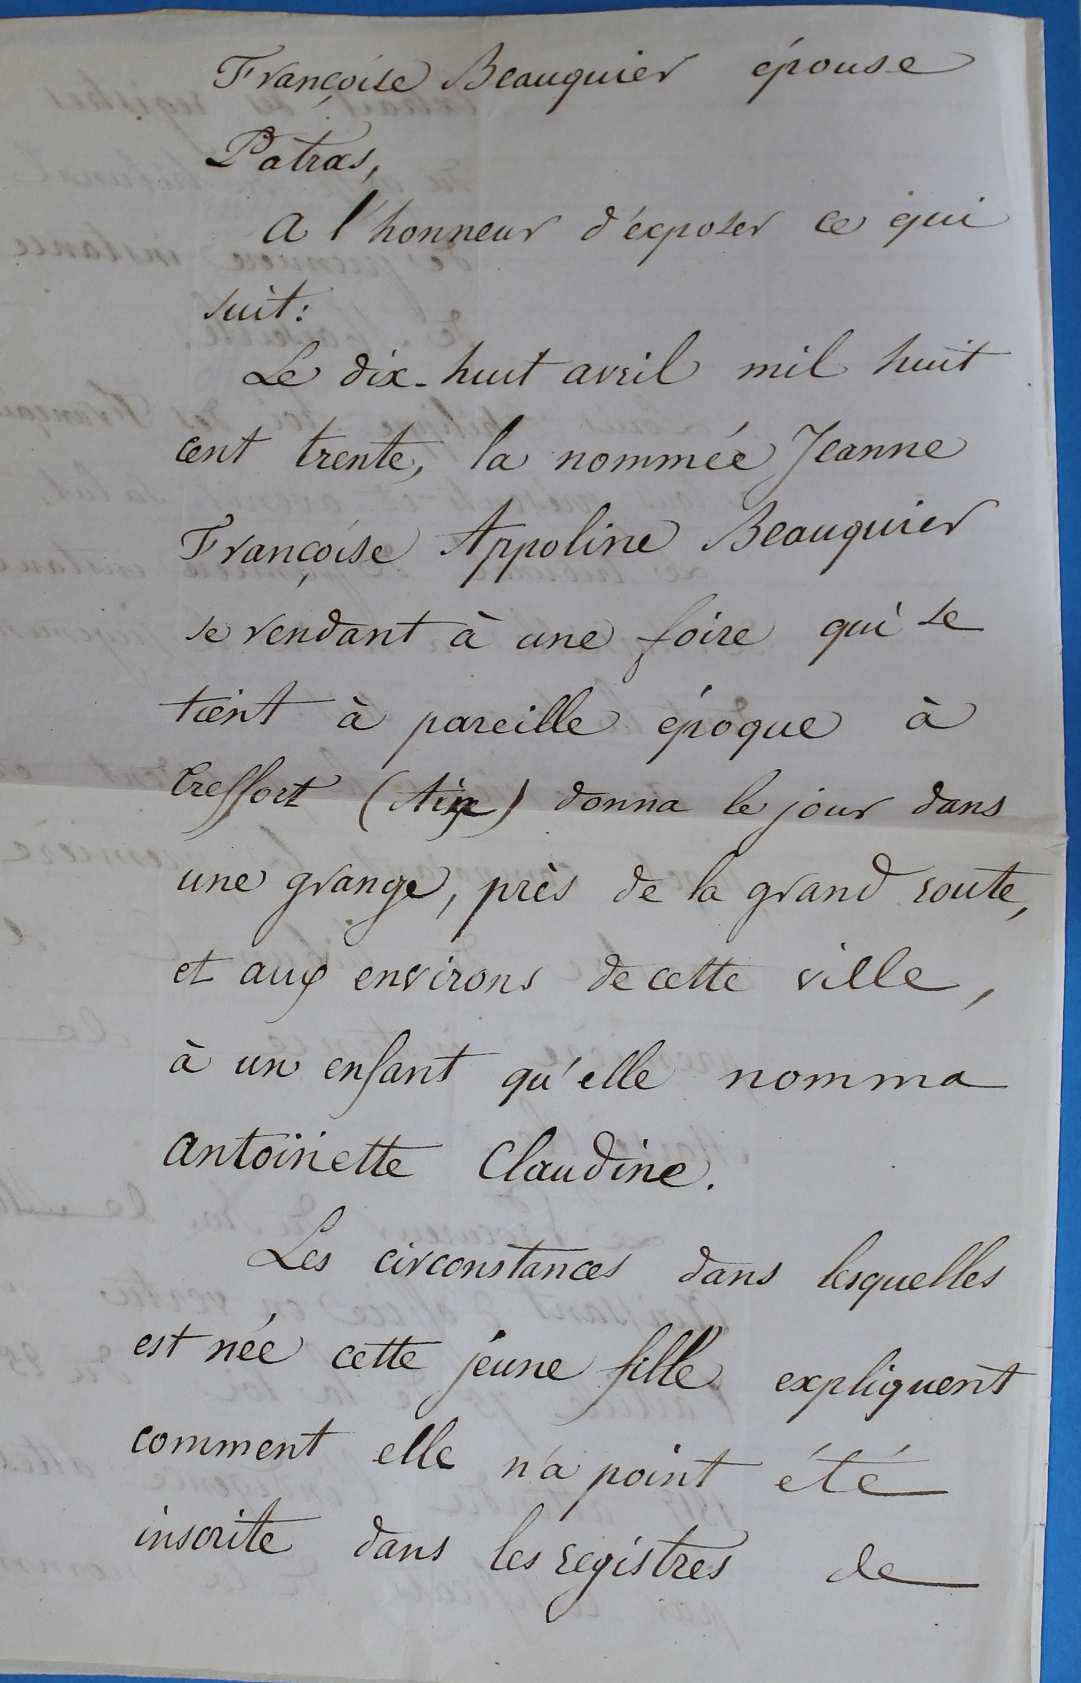 Françoise Beauquier épouse
Patras,
A l'honneur d'exposer ce qui
suit:
Le dix-huit avril mil huit
cent trente, la nommée Jeanne
Françoise Appoline Beauquier
se rendant à une foire qui se
tient à pareille époque à
Treffort (Ain) donna le jour dans
une grange, près de la grand route,
et aux environs de cette ville,
à un enfant qu'elle nomma
Antoinette Claudine.
Les circonstances dans lesquelles
est née cette jeune fille expliquent
comment elle n'a point été
inscrite dans les registres de